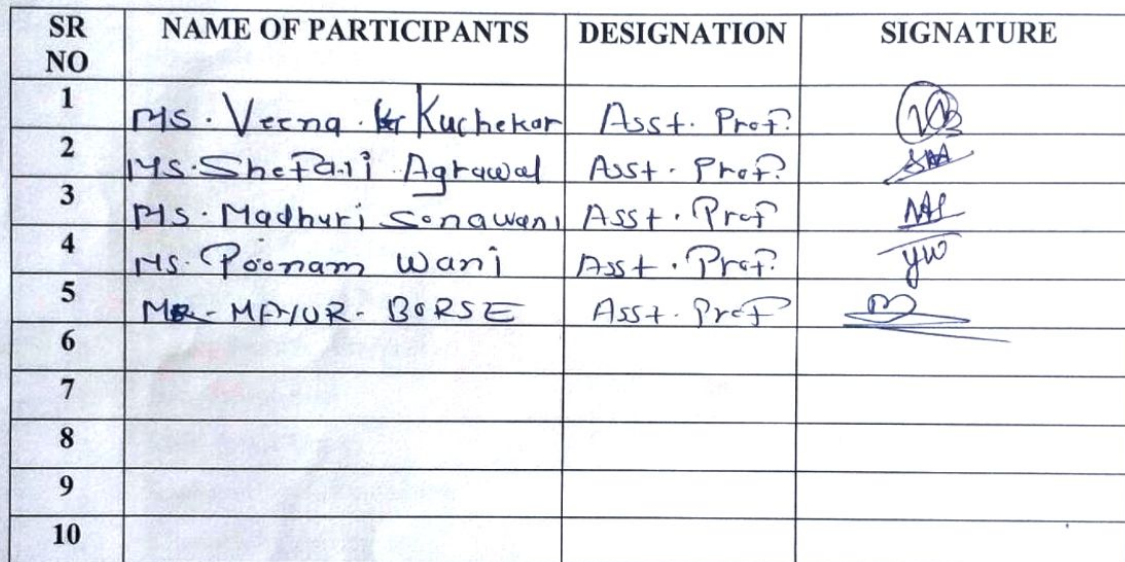 SR NO NAME OF PARTICIPANTS DESIGNATION SIGNATURE
1 Ms. Veena. Kuchekar Asst. Prof.
2 Ms. Shefali Agrawal Asst. Prof.
3 Ms. Madhuri Sonawani Asst. Prof
4 Ms. Poonam Wani Asst. Prof.
5 MR. MAYUR. BORSE Asst. Prof
6
7
8
9
10